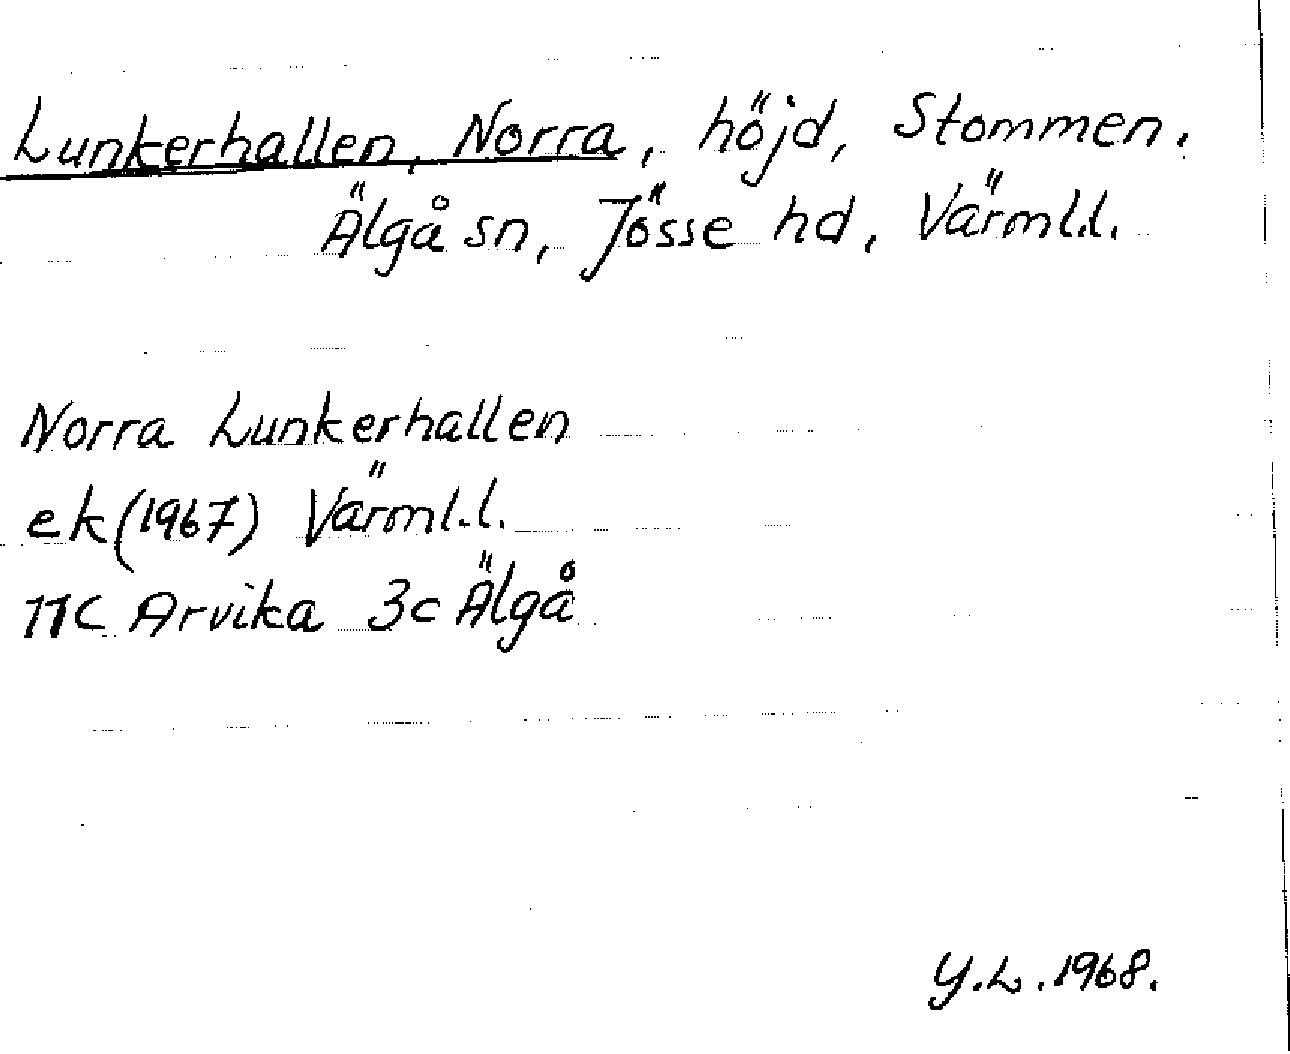 Lunkerhallen, Norra, höjd, Stommen.
Älgå sn, Jösse hd, Värml.l.
Norra Lunkerhallen
ek (1967) Värml.l.
11C Arvika 3c Älgå
Y.L. 1968.